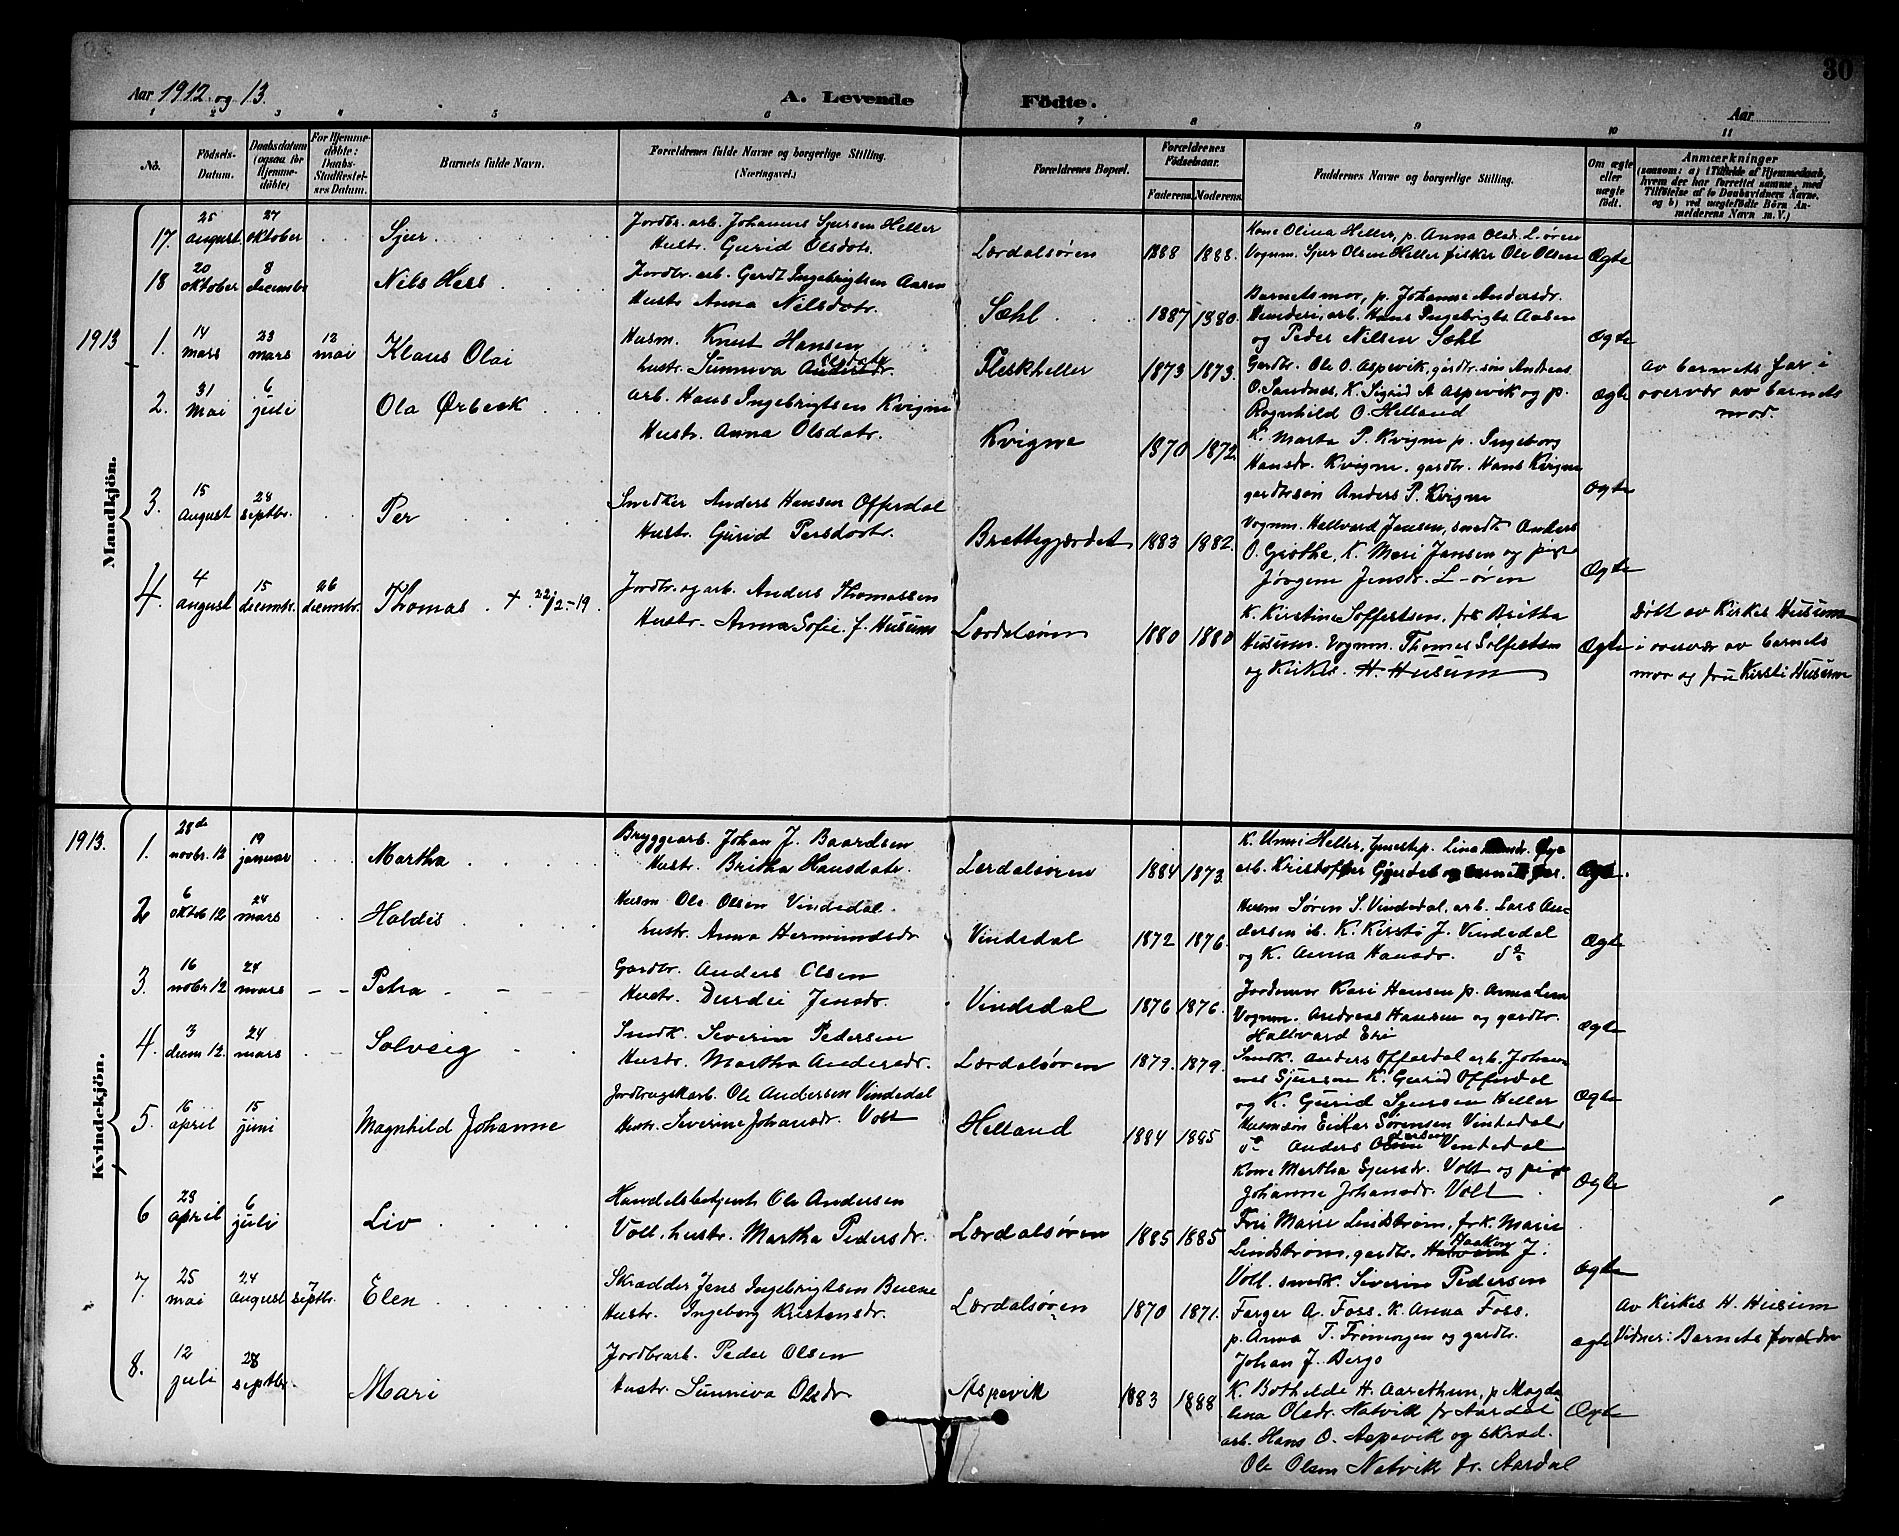 30
Aar 1912 og 13.
A. Levende Födte.
Aar
1 2 3 4 5 6 7 8 9 10 11
No.
Födsels-Datum.
Daabsdatum (ogsaa for Hjemme-döbte)
For Hjemme-döbte: Daabs-Stadfæstelsens Datum.
Barnets fulde Navn.
Forældrenes fulde Navne og borgerlige Stilling. (Næringsvei.)
Forældrenes Bopæl.
Forældrenes Födselsaar.
Faderens. Moderens.
Faddernes Navne og borgerlige Stilling.
Om ægte eller uægte födt.
Anmærkninger
(saasom: a) i Tilfælde af Hjemmedaab, hvem der har forrettet samme, med Tilföielse af to Daabsvidners Navne, og b) ved uægtefödte Börn Anmelderens Navn m. V.)
Mandkjön.
17. 25 august 27 oktober Sjur
Jordbr. arb. Johannes Sjursen Heller
Hustr. Gurid Olsdotr.
Lærdalsøren 1888 1888.
Kone Olina Heller, p. Anna Olsdr. L-ören
Vognm. Sjur Olsen Heller fisker Ole Olsen
Ægte
18 20 oktober 8 decembr Nils Hess
Jordbr. arb. Gerdt Ingebrigtsen Aasen
Hustr. Anna Nilsdotr.
Sæhl 1887 1880.
Barnetsmor, p. Johanne Andersdr.
arb. Hans Ingebrigts. Aasen
og Peder Nilsen Sæhl
Ægte
1913
1. 14 mars 23 mars 12 mai Klaus Olai
Husm. Knut Hansen
hustr. Sunniva Andersdr. Olsdatr
Fleskheller 1873 1873.
Gardbr. Ole O. Aspevik, gardbr. søn Andreas
O. Sandnes, K. Sigrid A Aspevik og p.
Ragnhild O. Helland
Ægte
Av barnets far i
overvær av barnets
mor.
2. 31 mai 6 juli Ola Ørbeck
arb. Hans Ingebrigtsen Kvigne
Hustr. Anna Olsdatr.
Kvigne 1870 1872.
K. Marta P. Kvigne p. Ingeborg
Hansdr. Kvigne. gardbr. Hans Kvigne
gardbrsøn Anders P. Kvigne
Ægte
3. 15 august 28 septbr. Per
Snedker Anders Hansen Offerdal
Hustr. Gurid Persdotr.
Brattegjerdet 1883 1882.
Vognm. Hallvard Jensen, smedk Anders
O. Grøthe, K. Mari Jansen og pige
Jørgene Jensdr. L-ören
Ægte
4. 4 august 15 decembr. 26 decembr. Thomas + 22/2-19.
Jordbr. og arb. Anders Thomassen
Hustr. Anna Sofie f. Husum
Lærdalsøren 1880 1880
K. Kirstine Solfestsen, frk Britha
Husum. Vognm. Thomas Solfestsen
og Kirkes. H. Husum
Ægte
Døbt av Kirkes Husum
i overvær av barnets
mor og fru Kirsti Husum
Kvindekjön.
1913.
1. 28de novbr. 12 19 januar Martha
Bryggearb. Johan J. Baardsen
Hustr. Britha Hansdatr.
Lerdalsøren 1884 1873.
K. Unni Heller, Lina Øye
arb. Kristoffer Gjerdet og barnets far.
Ægte
2 6 oktob 12 24 mars Haldis
Husm Ole Olsen Vindedal.
hustr. Anna Hermundsdr
Vindedal 1872 1876.
Husm Søren S. Vindedal, arb. Lars An-
dersen ib. K. Kirsti J. Vindedal
og K. Anna Hansdr.
Ægte
3. 16 nobr 12 24 mars Petra
Gardbr. Anders Olsen
Hustr. Durdei Jensdr.
Vindedal 1876 1876.
Jordemor Kari Hansen p. Anna Lem
Vognm. Andreas Hansen og gardbr.
Hallvard Eri
Ægte
4. 3 decm 12. 24 mars Solveig
Snedk. Severin Pedersen
Hustr. Martha Andersdr.
Lærdalsøren 1879. 1879.
Snedk. Anders Offerdal arb. Johan-
nes Sjursen K. Gurid Offerdal
og K. Gurid Sjursen Heller
Ægte
5. 16 april 15 juni Magnhild Johanne
Jordbrugsarb. Ole Andersen Vindedal
Hustr. Severine Johansdr. Volt
Helland 1884 1885
Husmsøn Einar Sørensen Vindedal
Anders Larsen Vindedal
Kone Martha Sjursdr. Volt og pige
Johanne Johansdr. Volt
Ægte
6 23 april 6 juli Liv
Handelsbetjent Ole Andersen
Voll, hustr. Martha Pedersdr.
Lærdalsøren 1885 1885
Fru Marie Lindstrøm, frk. Marie
Lindstrøm, gardbr. Haakon J.
Voll. snedk. Severin Pedersen
Ægte
7. 25 mai 24 august 7 septbr. Elen
Skrædder Jens Ingebrigtsen Buene
Hustr. Ingeborg Kristensdr.
Lærdalsøren 1870 1871.
Farger A. Foss. K. Anna Foss.
p. Anna T. Frømorgen og gardbr.
Johan J. Bergo
Ægte
Av Kirkes H. Husum
Vidner: Barnets foreldre
8. 12 juli 28 septbr. Mari
Jordbrarb. Peder Olsen
Hustr. Sunniva Olsdr
Aspevik 1883 1888
K. Bothilde H. Aarethun, p Magda-
lena Olsdr. Natvik fr Aardal
arb. Hans O. Aspevik og skræd.
Ole Olsen Natvik fr. Aardal
Ægte